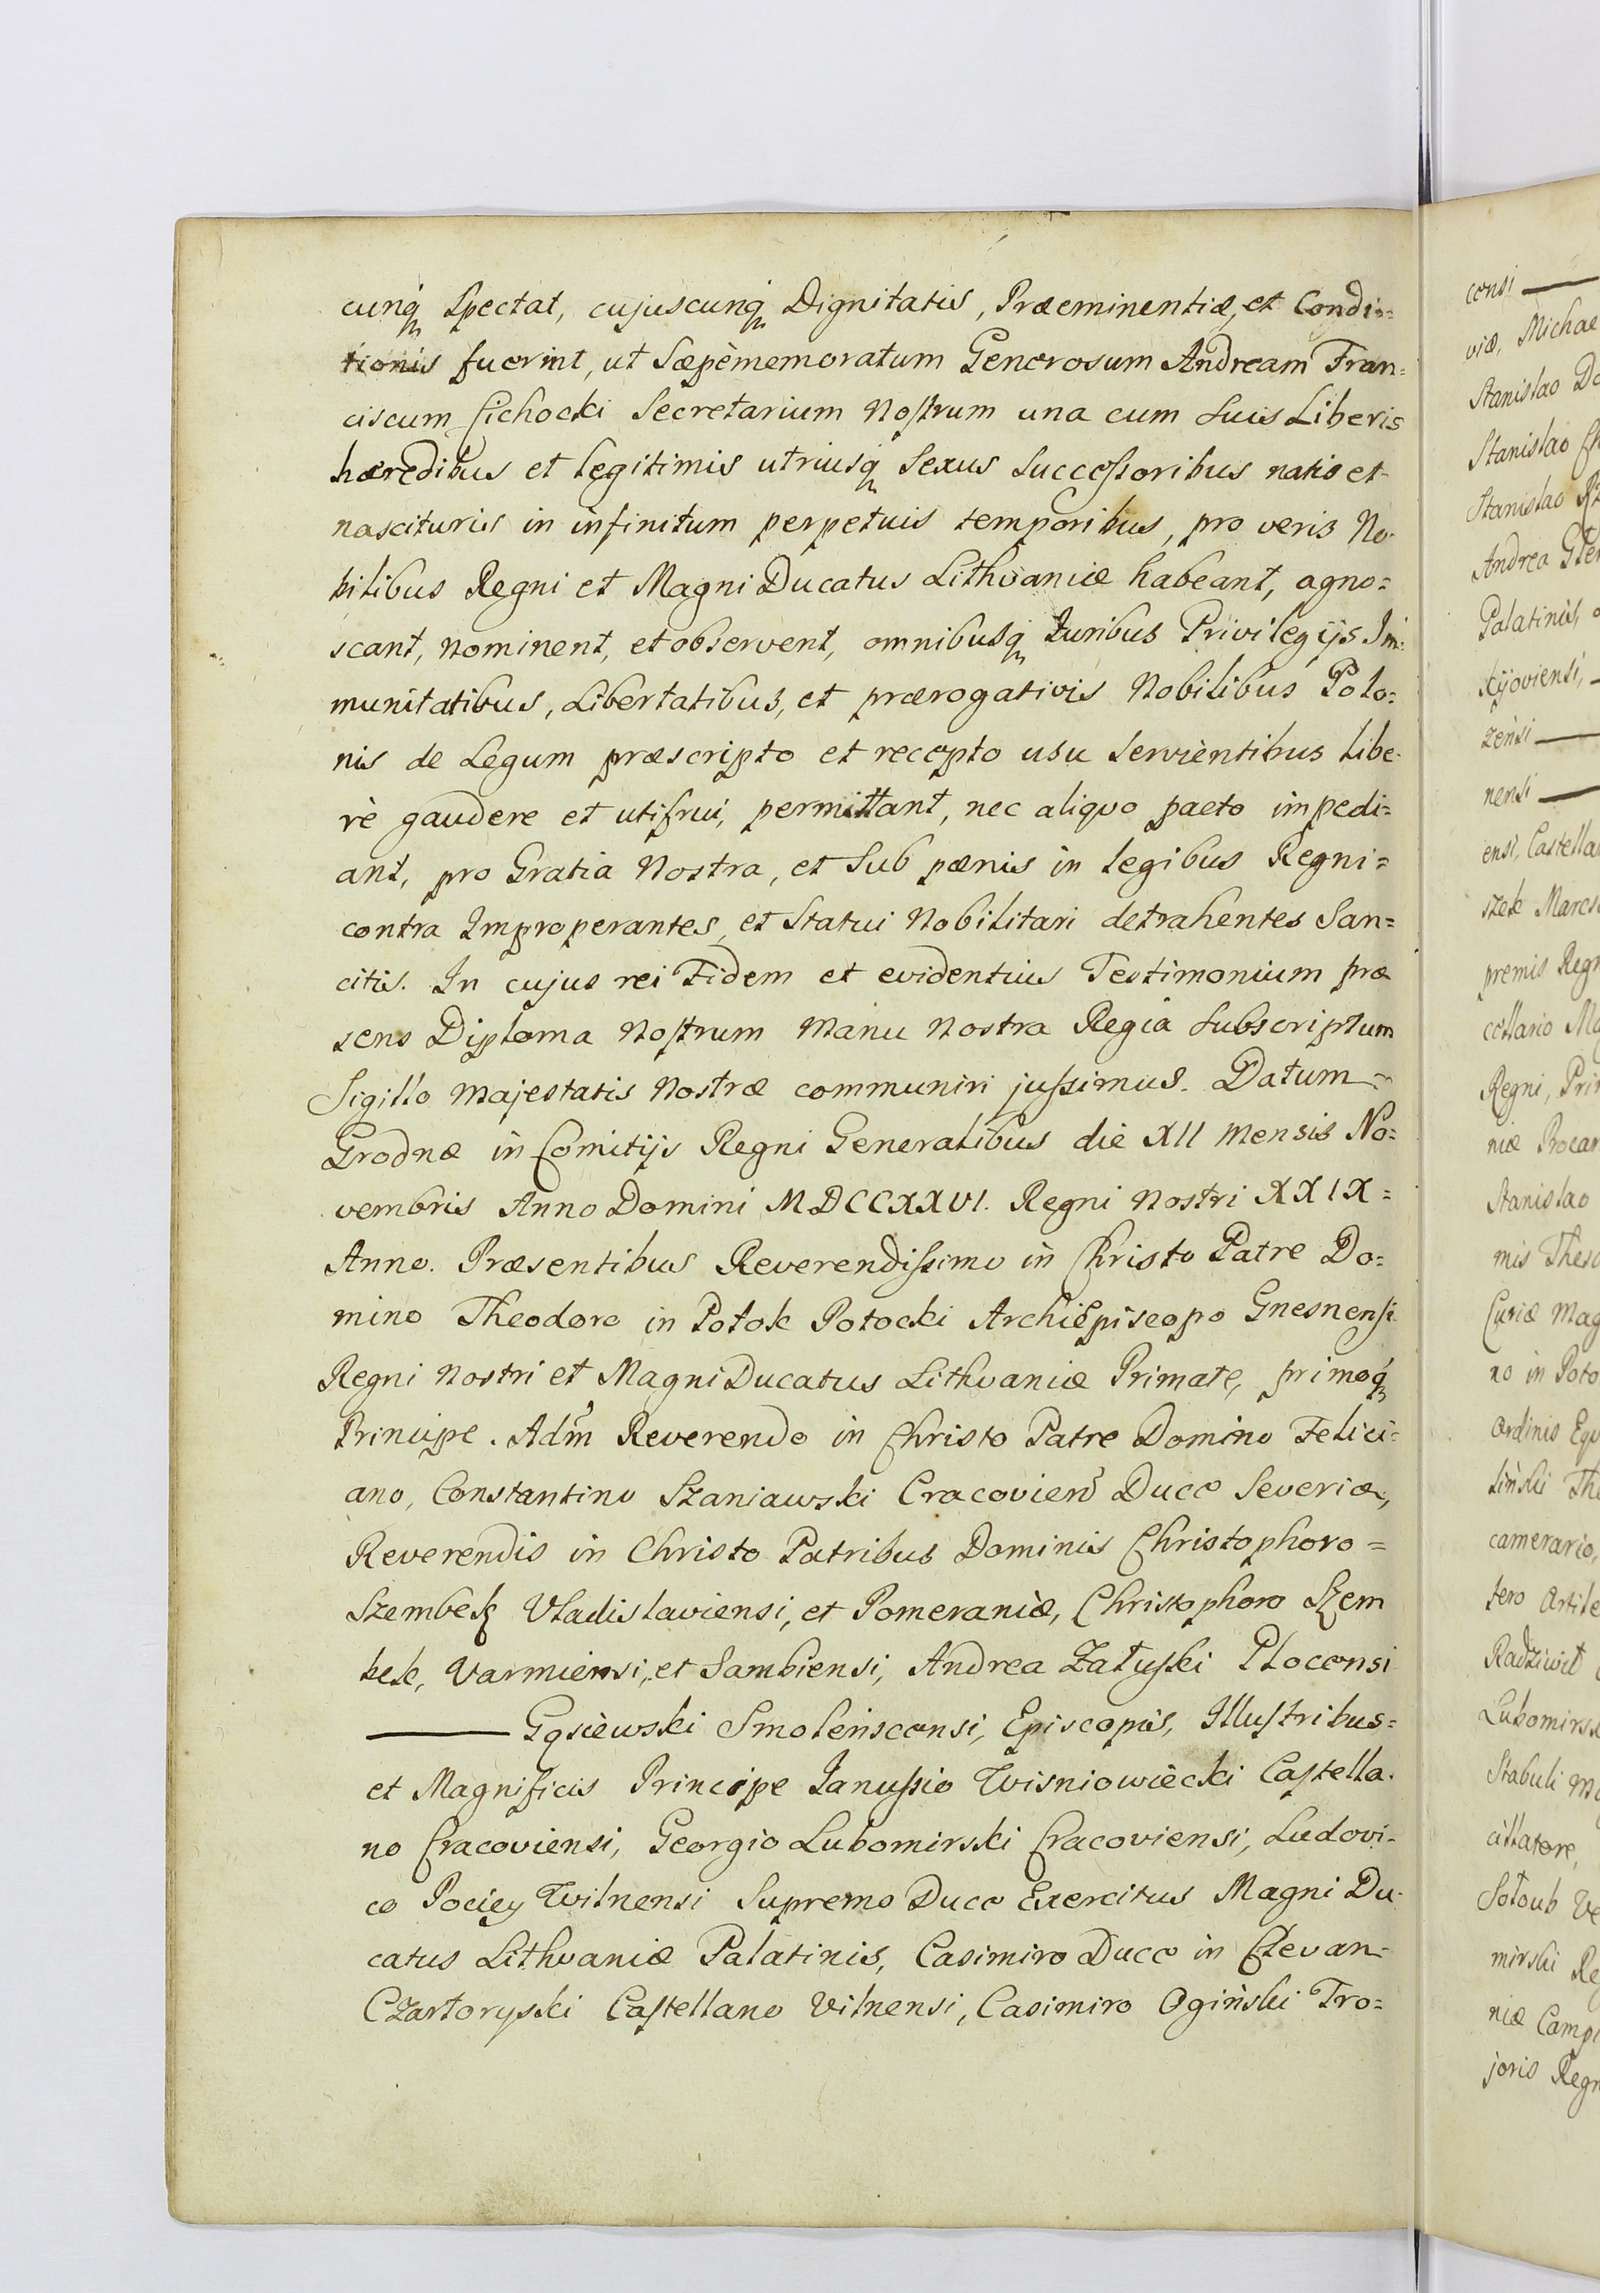 cunq́ Spectat, cujuscunq́ Dignitatis, Præeminentiæ, et Condi=
tionis fuerint, ut Sæpèmemoratum Generosum Andream Fran=
ciscum Cichocki Secretarium Nostrum una cum Suis Liberis
hæredibus et legitimis utriusq́ Sexus Successoribus natis et
nascituris in infinitum perpetuis temporibus, pro veris No-
bilibus Regni et Magni Ducatus Lithvaniæ habeant, agno=
scant, nominent, et observent, omnibusq́ Iuribus Privilegijs Im=
munitatibus, Libertatibus, et prærogativis Nobilibus Polo=
nis de Legum præscripto et recepto usu Servientibus libe-
rè gaudere et utifrui, permittant, nec aliquo pacto impedi=
ant, pro Gratia Nostra, et Sub pænis in legibus Regni=
contra Improperantes, et Statui Nobilitari detrahentes San=
citis. In cujus rei Fidem et evidentius Testimonium præ
sens Diploma Nostrum Manu Nostra Regia Subscriptum
Sigillo Majestatis Nostræ communiri jussimus. Datum=
Grodnæ in Comitijs Regni Generalibus die XII Mensis No=
vembris Anno Domini MDCCXXVI. Regni Nostri XXIX=
Anno. Præsentibus Reverendissimo in Christo Patre Do=
mino Theodoro in Potok Potocki Archiepiscopo Gnesnensi
Regni Nostri et Magni Ducatus Lithvaniæ Primate, primoq́
Principe. Adm̃ Reverendo in Christo Patre Domino Felici=
ano, Constantino Szaniawski Cracovieñ Duce Severiæ,
Reverendis in Christo Patribus Dominis Christophoro=
Szembek Vladislaviensi, et Pomeraniæ, Christophoro Szem
bek, Varmiensi, et Sambiensi, Andrea Załuski Plocensi
——— Gąsiewski Smoleńscensi, Episcopis, Illustribus=
et Magnificis Principe Janussio Wisniowiecki Castella-
no Cracoviensi, Georgio Lubomirski Cracoviensi, Ludovi-
co Pociey Wilnensi Supremo Duce Exercitus Magni Du-
catus Lithvaniæ Palatinis, Casimiro Duce in Clevan-
Czartoryski Castellano Vilnensi, Casimiro Ogiński Tro=
consi ———
viæ, Michae
Stanislao
Stanislao
Stanislao
Andrea
Palatinis,
Kijoviensi,
zensi ———
nensi ———
ensi, Castella
szek Marcs
premis Regn
cellario Ma
Regni, Prin
niæ Procan
Stanislao
mis Thes
Curiæ Mag
no in Poto
Ordinis Equ
liński The
camerario,
tero Artile
Radziwił
Lubomirsk
Stabuli M
cillatore,
Sołoub Ve
mirski Re
niæ Camp
joris Regn